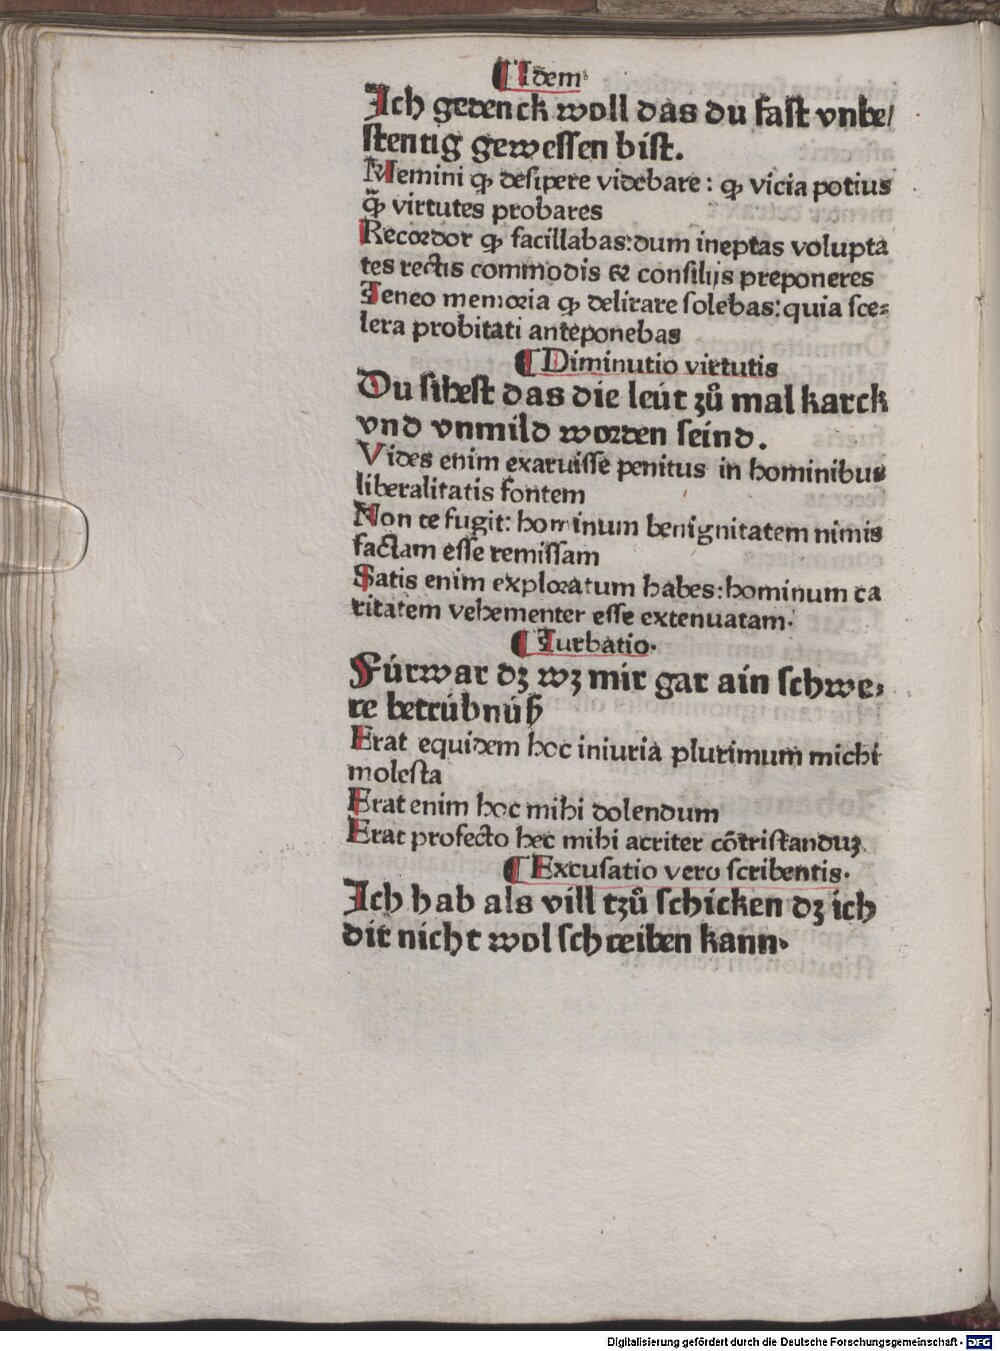 ¶ Idem
Ich gedenck woll das du fast vnbe/
stentig gewessen bist.
Memini ꝙ desipere videbare: ꝙ vicia potius
ꝙ̃ virtutes probares
Recordor ꝙ facillabas: dum ineptas volupta
tes rectis commodis & consilijs preponeres
Teneo memoria ꝙ delirare solebas: quia sce⸗
lera probitati anteponebas
¶ Diminutio virtutis
Du sihest das die leüt zů mal karck
vnd vnmild worden seind.
Vides enim exaruisse penitus in hominibus
liberalitatis fontem
Non te fugit: hominum benignitatem nimis
factam esse remissam
Satis enim exploratum habes: hominum ca
ritatem vehementer esse extenuatam.
¶ Turbatio.
Fúrwar dꝫ wꝫ mir gar ain schwe⸗
re betrúbnúß
Erat equidem hoc iniuria plurimum michi
molesta
Erat enim hoc mihi dolendum
Erat profecto hec mihi acriter cõtristanduꝫ
¶ Excusatio vero scribentis.
Ich hab als vill tzů schicken dꝫ ich
dir nicht wol schreiben kann.
Digitalisierung gefördert durch die Deutsche Forschungsgemeinschaft - DFG